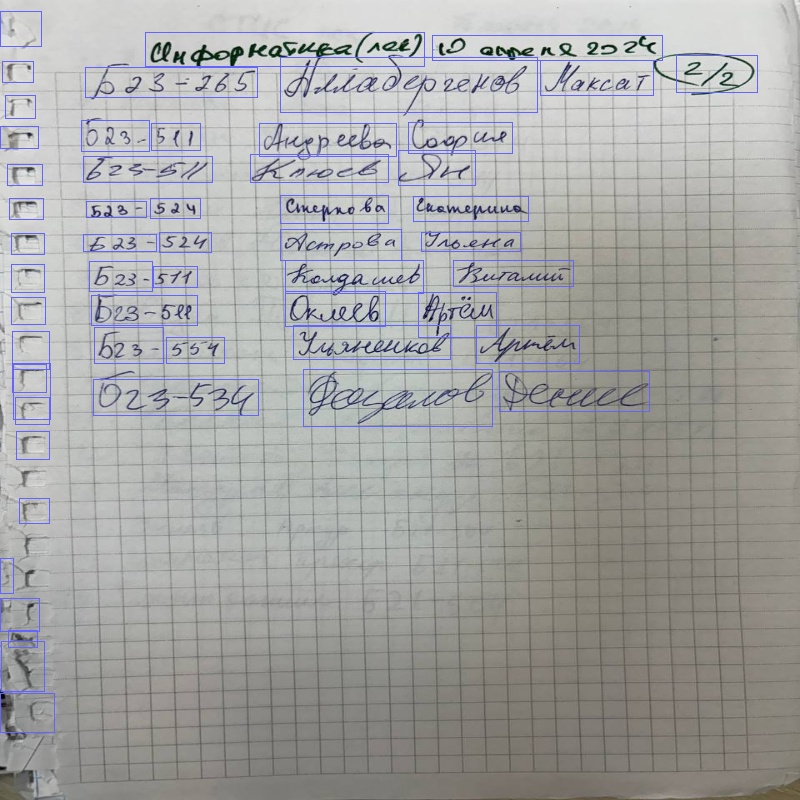 Информатика (лек) 10 апреля 2024
2/2
Б23-265 Аллабергенов Максат
Б23-511 Андреева София
Б23-511 Клюев Ян
Б23-524 Стеркова Екатерина
Б23-524 Астрова Ульяна
Б23-511 Колдашев Виталий
Б23-511 Оклеев Артём
Б23-554 Ульяненков Артём
Б23-534 Денис